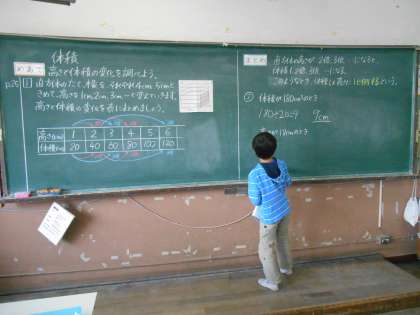 体積
めあて 高さと体積の変化を調べよう。
直方体のたて、横を、それぞれ4cm、5cmと
きめて、高さを1cm、2cm、3cm、…と変えていきます。
高さと体積の変化を表にまとめましょう。
高さ(cm) 1 2 3 4 5 6
体積(cm³) 20 40 60 80 100 120
まとめ 直方体の高さが2倍、3倍、…になると、
体積も2倍、3倍、…になる。
このようなとき、体積は高さに比例するという。
体積が180cm³のとき
180÷20=9 9cm